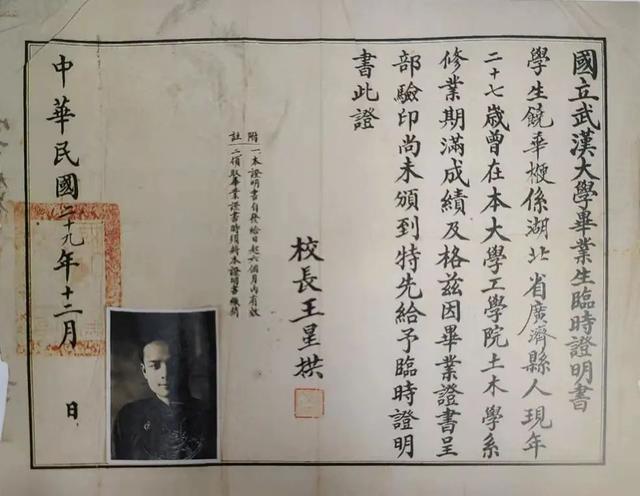 國立武漢大學畢業生臨時證明書
學生饒華梗係湖北省廣濟縣人現年
二十七歲曾在本大學工學院土木學系
修業期滿成績及格茲因畢業證書呈
部驗印尚未頒到特先給予臨時證明
書此證
校長王星拱
附註
一、本證明書自發給日起六個月內有效
二、領取畢業證書時須將本證明書繳銷
中華民國二十九年十二月 日